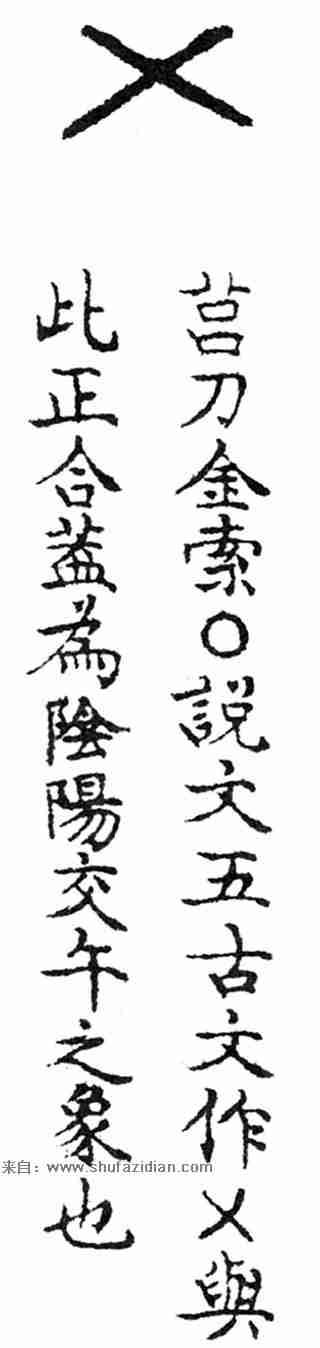 㐅
莒刀金索○說文五古文作㐅與
此正合蓋為陰陽交午之象也
来自：www.shufazidian.com